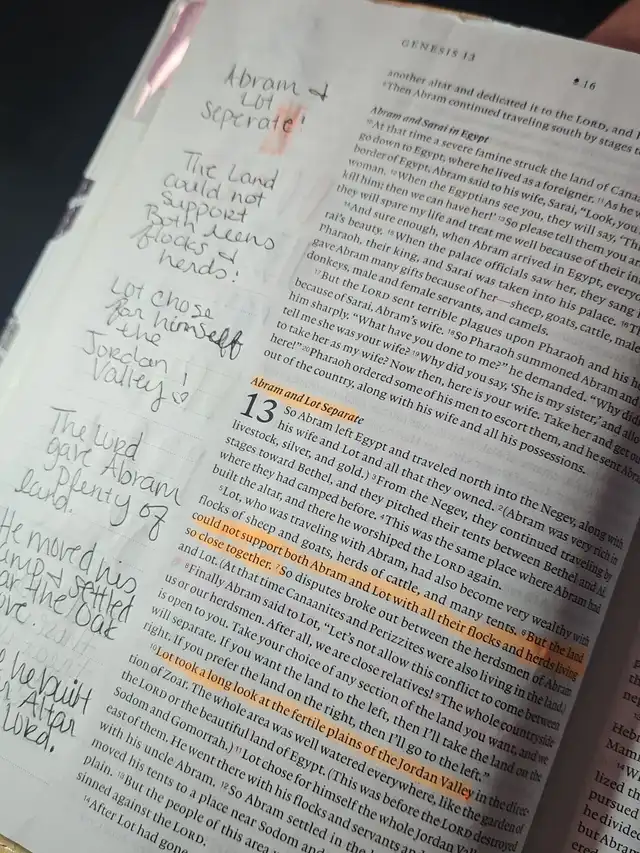 GENESIS 13
16
Abram &
Lot
Seperate!
The Land
could not
support
Both mens
flocks &
herds!
Lot chose
for himself
the
Jordan
Valley!
The Lord
gave Abram
plenty of
land.
He moved his
settled
the Oak
he built
Altar
Lord.
another altar and dedicated it to the LORD, and
⁹Then Abram continued traveling south by stages
Abram and Sarai in Egypt
¹⁰At that time a severe famine struck the land of
go down to Egypt, where he lived as a foreigner. ¹¹As he
border of Egypt, Abram said to his wife, Sarai, “Look, you
woman. ¹²When the Egyptians see you, they will say,
kill him; then we can have her!’ ¹³So please tell them you
they will spare my life and treat me well because of their
¹⁴And sure enough, when Abram arrived in Egypt,
rai’s beauty. ¹⁵When the palace officials saw her, they sang
Pharaoh, their king, and Sarai was taken into his palace. ¹⁶
gave Abram many gifts because of her—sheep, goats, cattle, male
donkeys, male and female servants, and camels.
¹⁷But the LORD sent terrible plagues upon Pharaoh and his
because of Sarai, Abram’s wife. ¹⁸So Pharaoh summoned Abram and
him sharply. “What have you done to me?” he demanded. “Why
tell me she was your wife? ¹⁹Why did you say, ‘She is my sister,’ and
to take her as my wife? Now then, here is your wife. Take her and get out
here!” ²⁰Pharaoh ordered some of his men to escort them, and he sent Abram
out of the country, along with his wife and all his possessions.
Abram and Lot Separate
13 So Abram left Egypt and traveled north into the Negev, along with
his wife and Lot and all that they owned. ²(Abram was very rich in
livestock, silver, and gold.) ³From the Negev, they continued traveling by
stages toward Bethel, and they pitched their tents between Bethel and Ai,
where they had camped before. ⁴This was the same place where Abram had
built the altar, and there he worshiped the LORD again.
⁵Lot, who was traveling with Abram, had also become very wealthy with
flocks of sheep and goats, herds of cattle, and many tents. ⁶But the land
could not support both Abram and Lot with all their flocks and herds living
so close together. ⁷So disputes broke out between the herdsmen of Abram
and Lot. (At that time Canaanites and Perizzites were also living in the land.)
⁸Finally Abram said to Lot, “Let’s not allow this conflict to come between
us or our herdsmen. After all, we are close relatives! ⁹The whole countryside
is open to you. Take your choice of any section of the land you want, and we
will separate. If you want the land to the left, then I’ll take the land on the
right. If you prefer the land on the right, then I’ll go to the left.”
¹⁰Lot took a long look at the fertile plains of the Jordan Valley in the direc-
tion of Zoar. The whole area was well watered everywhere, like the garden of
the LORD or the beautiful land of Egypt. (This was before the LORD destroyed
Sodom and Gomorrah.) ¹¹Lot chose for himself the whole Jordan
east of them. He went there with his flocks and servants
with his uncle Abram. ¹²So Abram settled in the
moved his tents to a place near Sodom and
plain. ¹³But the people of this area
sinned against the LORD.
¹⁴After Lot had gone
Hebr
Mam
lized th
pursued
he divided
but Abram